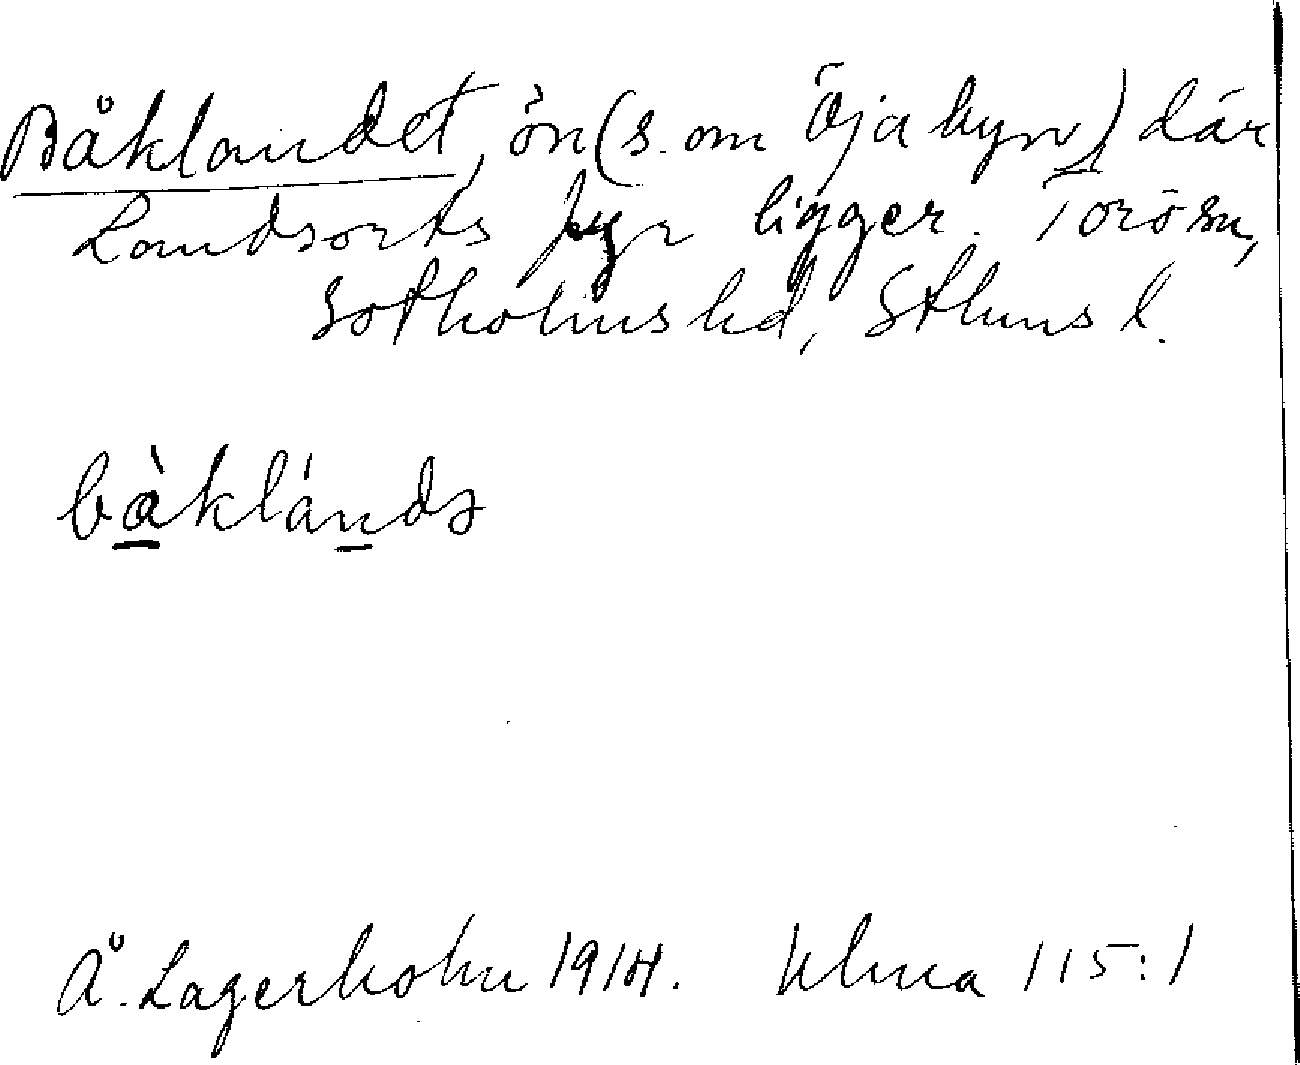 Båklandet, ön (s. om Öja byn) där
Landsorts fyr ligger. Torö sn,
Sotholms hd, Sthms l.
bàklánds
Å. Lagerholm 1914. Ulma 115:1